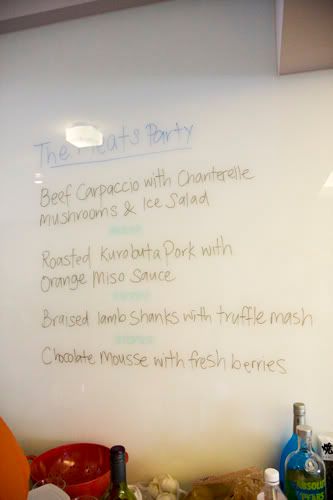 The Meats Party
Beef Carpaccio with Chanterelle
mushrooms & Ice Salad
Roasted Kurobuta Pork with
Orange Miso Sauce
Braised lamb shanks with truffle mash
Chocolate Mousse with fresh berries
ABSOLUT